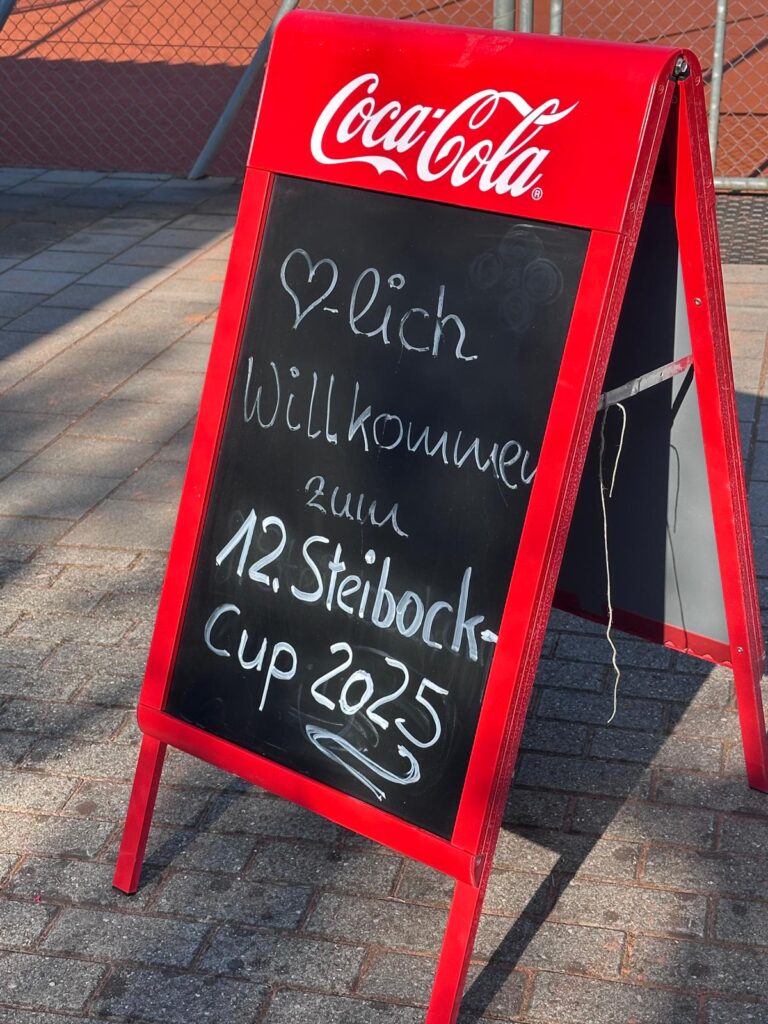 Coca-Cola®
♡-lich
Willkommen
zum
12. Steibock-
Cup 2025